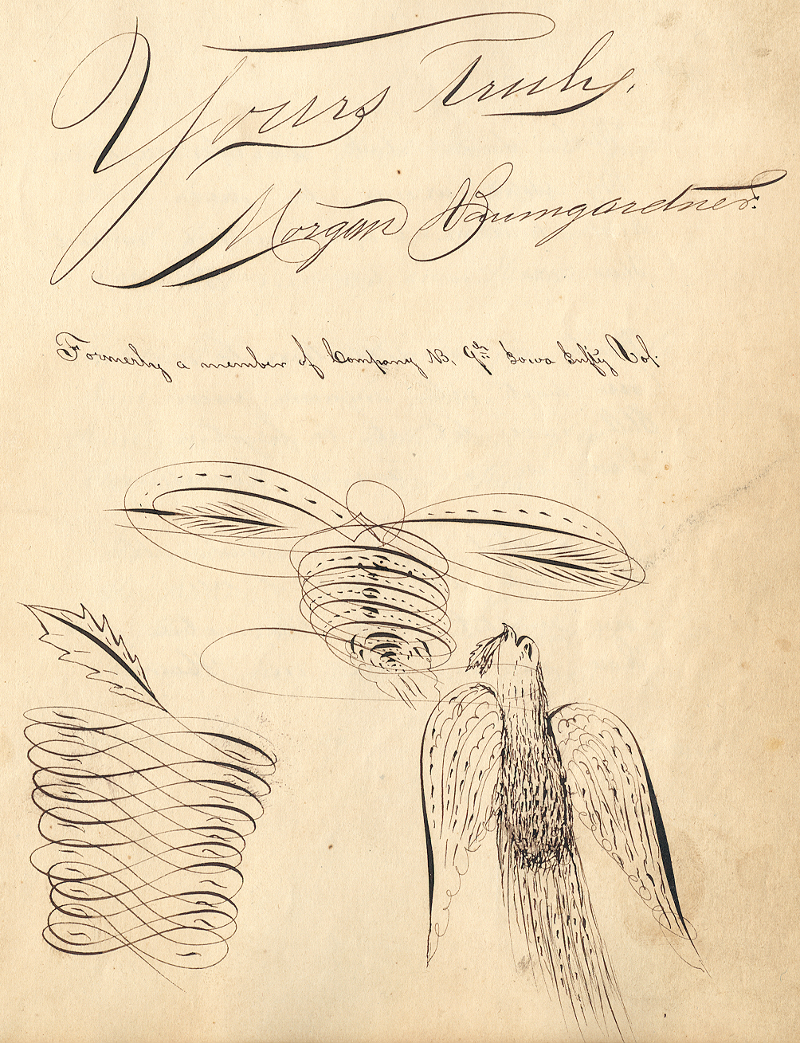 Yours Truly,
Morgan Baumgardner.
Formerly a member of Company B, 9th Iowa Infty Vol.